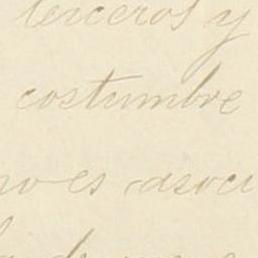 terceros y
costumbre
no es asoci